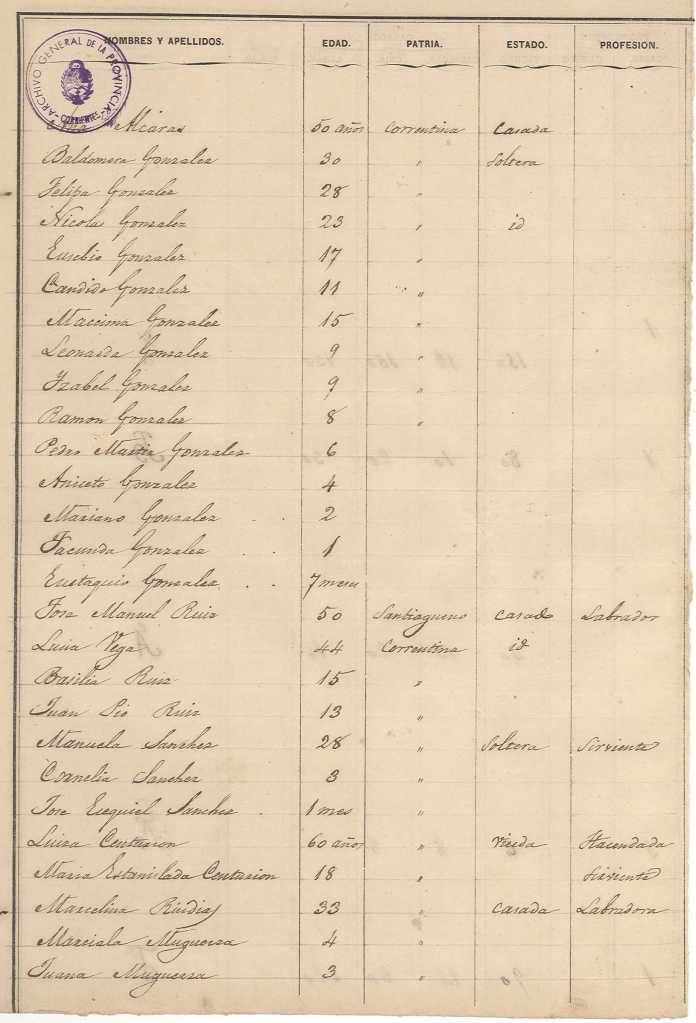 NOMBRES Y APELLIDOS. EDAD. PATRIA. ESTADO. PROFESION.
ARCHIVO GENERAL DE LA PROVINCIA
CORRIENTES
Alcaras 50 años Correntina Casada
Baldomera Gonzalez 30 " Soltera
Felipa Gonzalez 28 "
Nicolas Gonzalez 23 " id
Eusebio Gonzalez 17 "
Candido Gonzalez 11 "
Maccima Gonzalez 15 "
Leonarda Gonzalez 9 "
Izabel Gonzalez 9 "
Ramon Gonzalez 8 "
Pedro Martir Gonzalez 6
Aniceto Gonzalez 4
Mariano Gonzalez 2
Facunda Gonzalez 1
Eustaquio Gonzalez 7 meses
Jose Manuel Ruiz 50 Santiagueno Casado Labrador
Luisa Vega 44 Correntina id
Basilia Ruiz 15 "
Juan Pio Ruiz 13 "
Manuela Sanchez 28 " Soltera Sirviente
Cornelia Sanchez 3 "
Jose Esequiel Sanchez 1 mes "
Luisa Centurion 60 años " Viuda Hacendada
Maria Estanilada Centurion 18 " Sirviente
Marcelina Ruidias 33 " Casada Labradora
Marciala Muguerza 4 "
Juana Muguerza 3 "